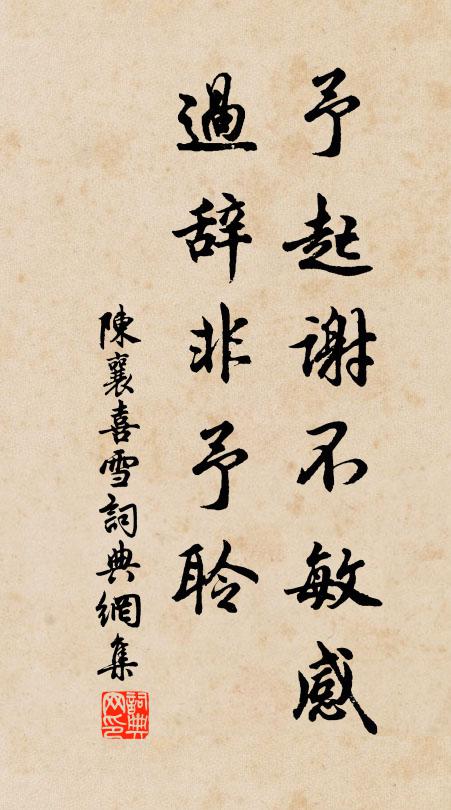 予起谢不敏感
過辞非予聆
陳襄喜雪詞典網集
詞典网印